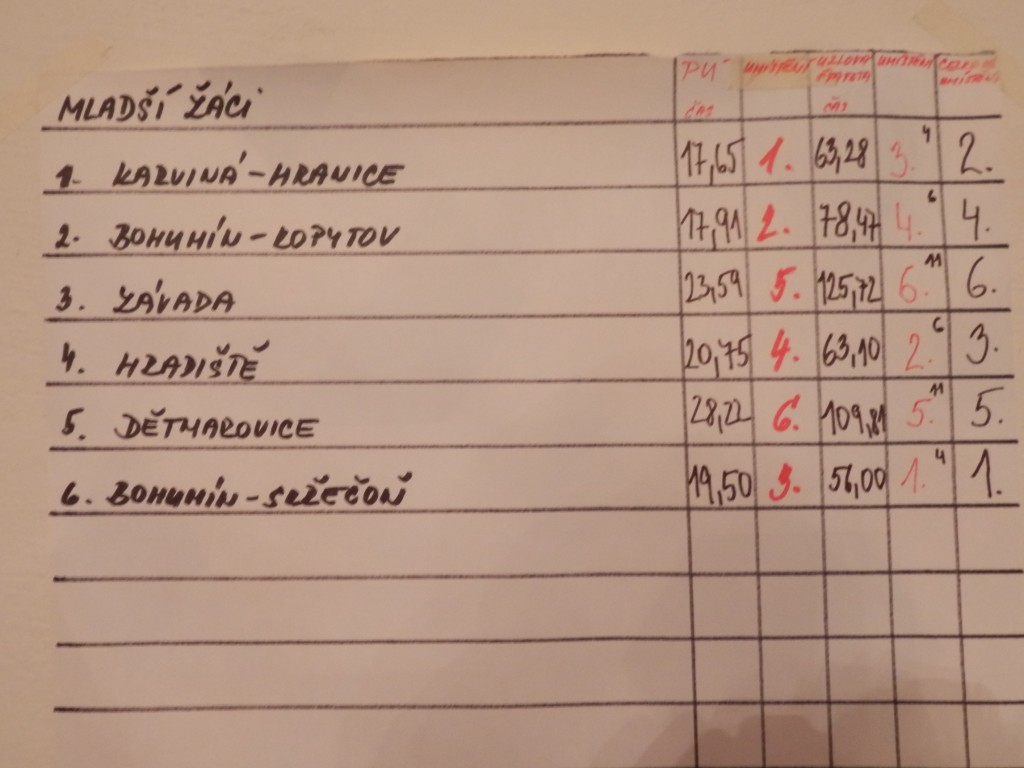 MLADŠÍ ŽÁCI PÚ ČAS UMÍSTĚNÍ UZLOVÁ ŠTAFETA ČAS UMÍSTĚNÍ CELKOVÉ UMÍSTĚNÍ
1. KARVINÁ-HRANICE 17,65 1. 63,28 3. 4 2.
2. BOHUMÍN-KOPYTOV 17,91 2. 78,47 4. 6 4.
3. ZÁVADA 23,59 5. 125,72 6. 11 6.
4. HRADIŠTĚ 20,75 4. 63,10 2. 6 3.
5. DĚTMAROVICE 28,22 6. 109,81 5. 11 5.
6. BOHUMÍN-SKŘEČOŇ 19,50 3. 56,00 1. 4 1.